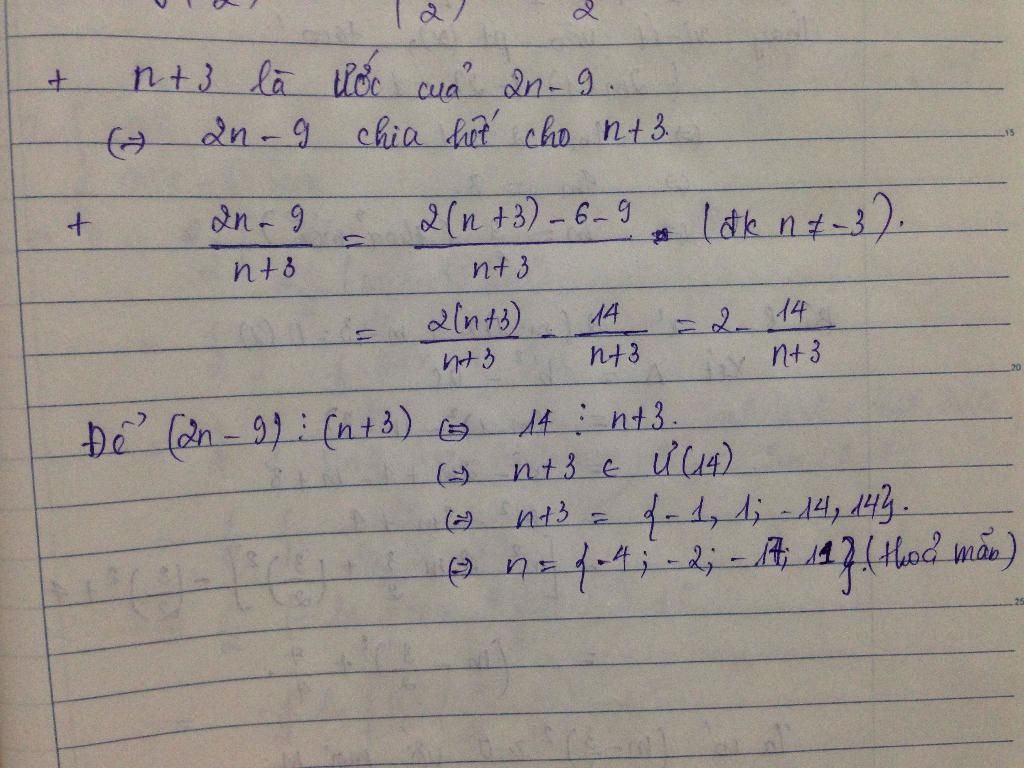 + n+3 là Ước của 2n-9.
(=) 2n-9 chia hết cho n+3.
+ (2n-9)/(n+3) = (2(n+3)-6-9)/(n+3) (đk n ≠ -3).
= 2(n+3)/(n+3) - 14/(n+3) = 2 - 14/(n+3)
Để (2n-9) ⋮ (n+3) (=) 14 ⋮ n+3.
(=) n+3 ∈ Ư(14)
(=) n+3 = {-1, 1; -14, 14}.
(=) n = {-4; -2; -17; 11}. (thoả mãn)